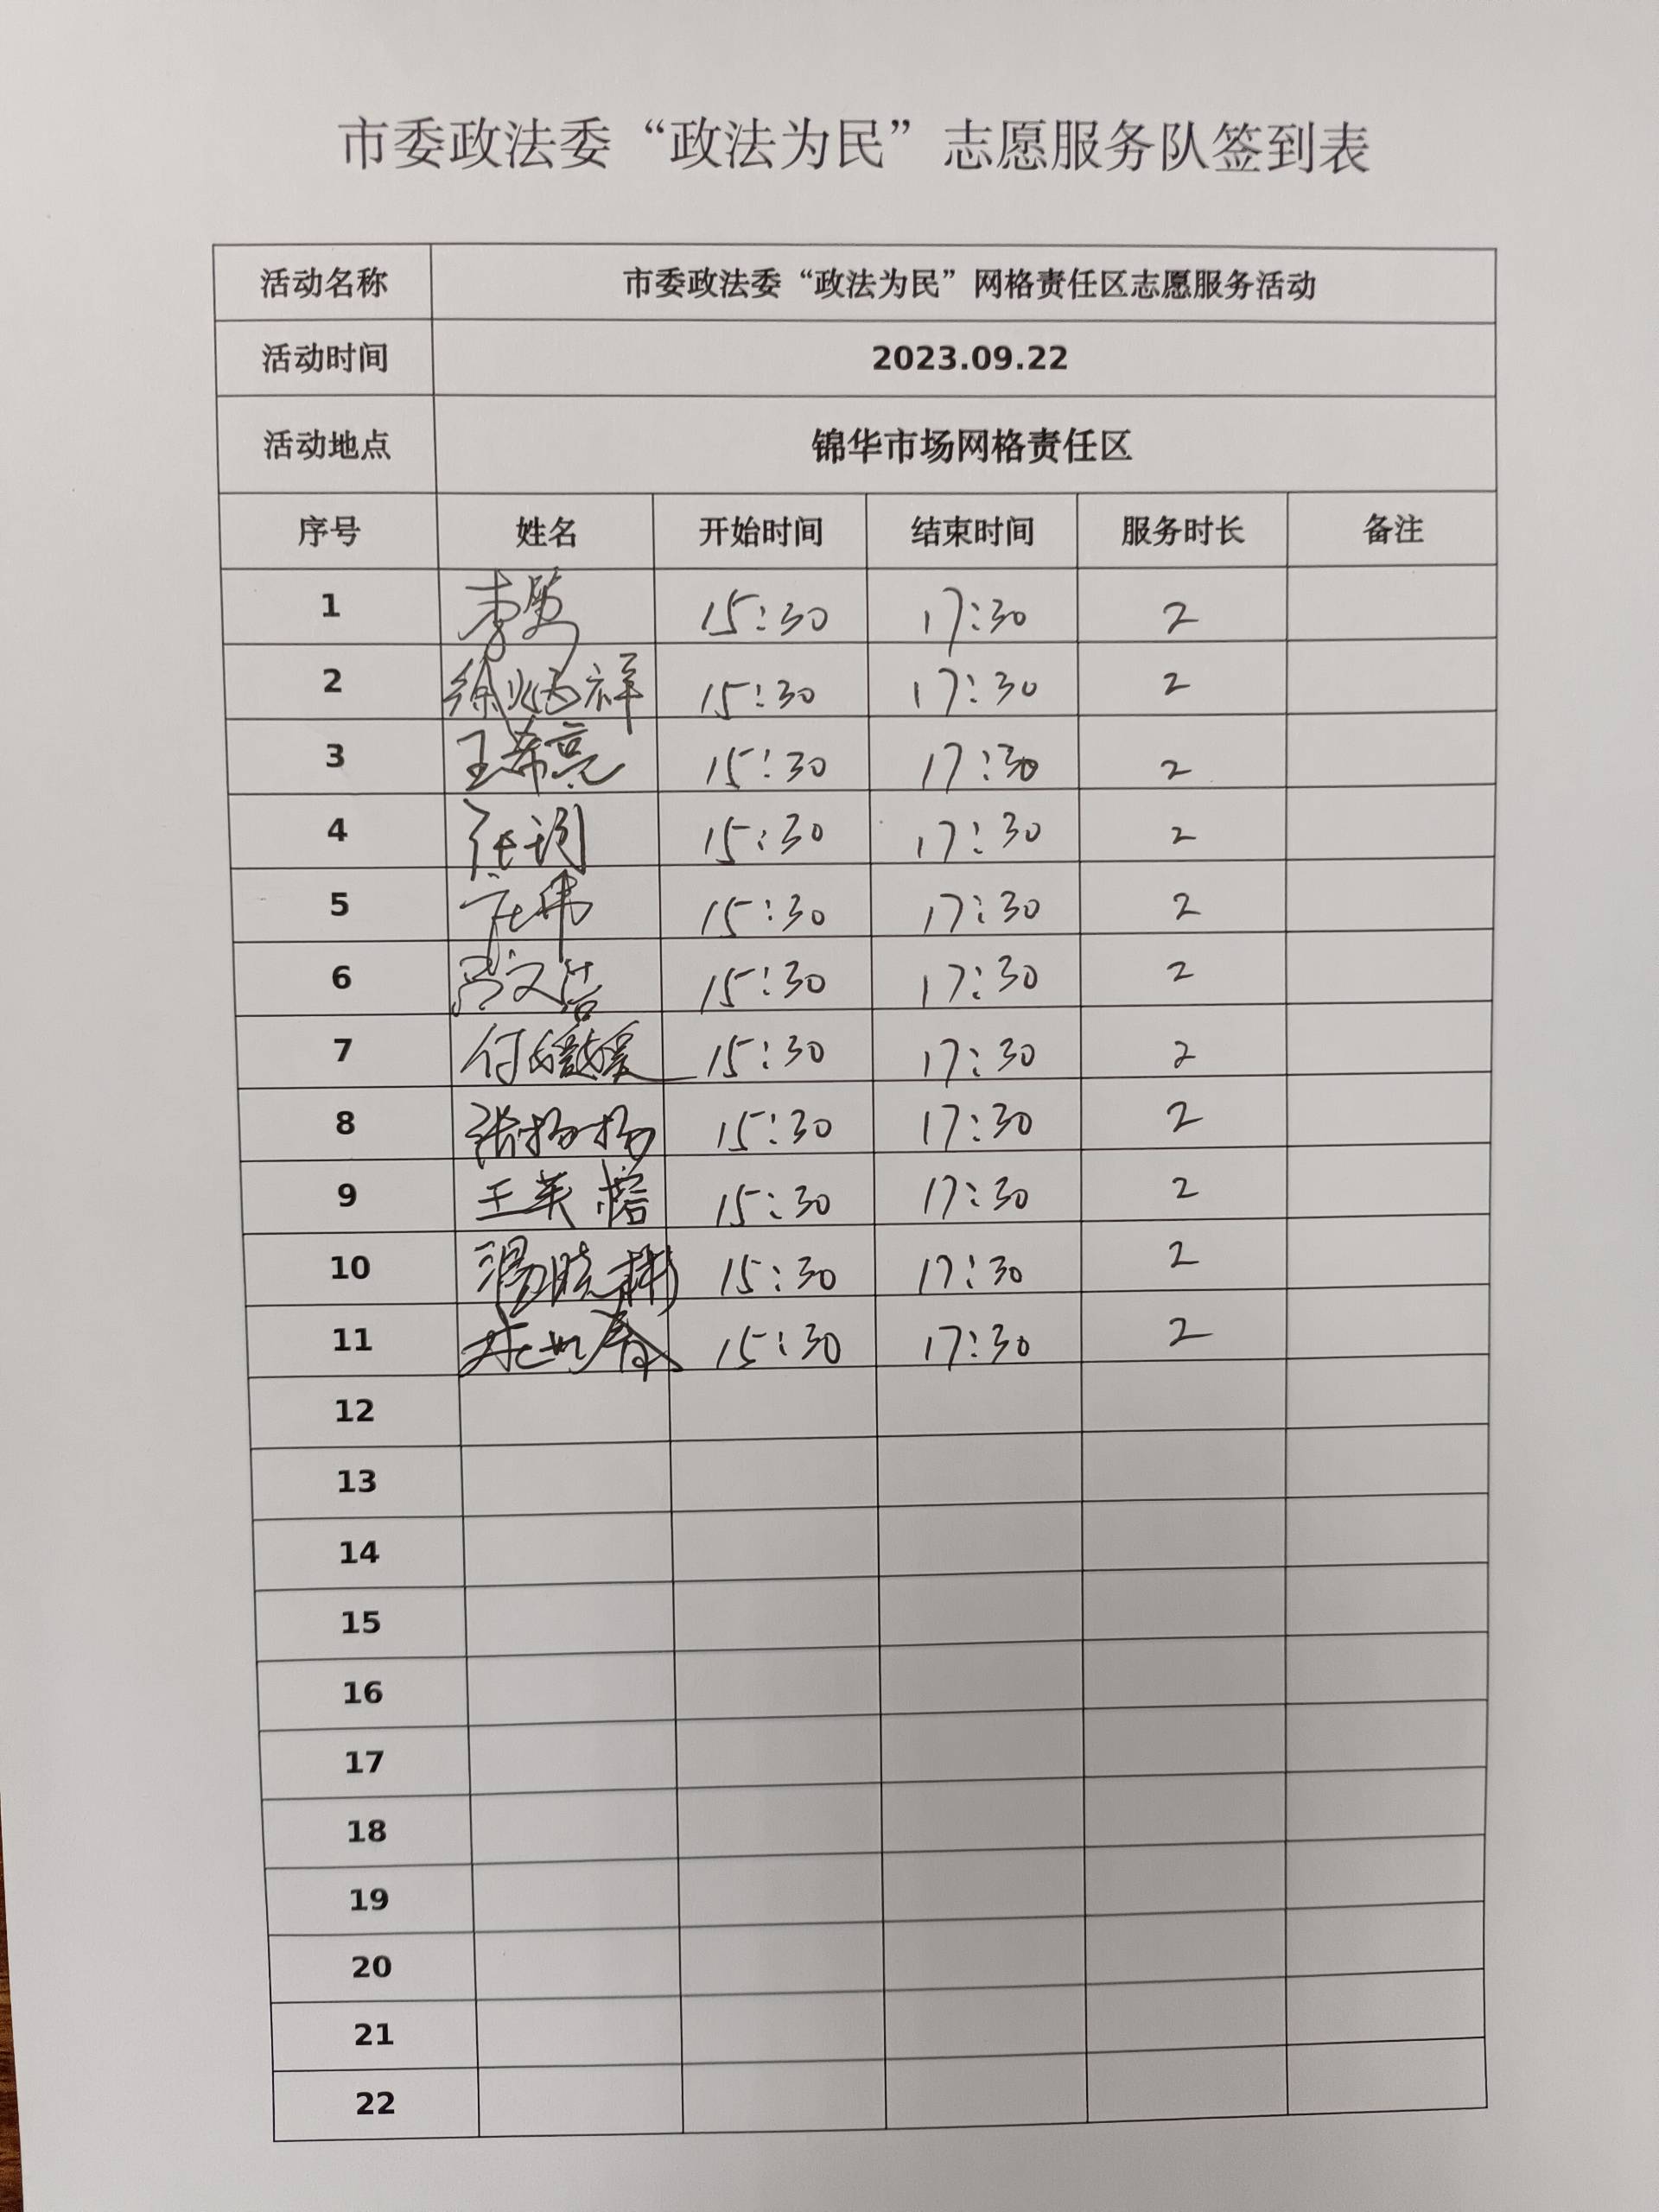 市委政法委“政法为民”志愿服务队签到表
活动名称 市委政法委“政法为民”网格责任区志愿服务活动
活动时间 2023.09.22
活动地点 锦华市场网格责任区
序号 姓名 开始时间 结束时间 服务时长 备注
1 李 15:30 17:30 2
2 徐炳祥 15:30 17:30 2
3 王希亮 15:30 17:30 2
4 15:30 17:30 2
5 庄伟 15:30 17:30 2
6 吕文浩 15:30 17:30 2
7 付媛媛 15:30 17:30 2
8 张杨杨 15:30 17:30 2
9 王英榕 15:30 17:30 2
10 汤晓彬 15:30 17:30 2
11 15:30 17:30 2
12
13
14
15
16
17
18
19
20
21
22